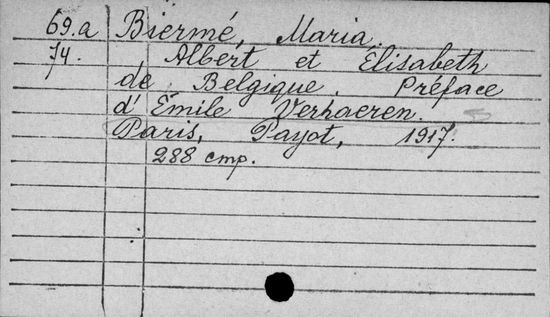 69.a Biermé, Maria.
74. Albert et Élisabeth
de Belgique. Préface
d'Émile Verhaeren.
Paris, Payot, 1917.
288 стр.